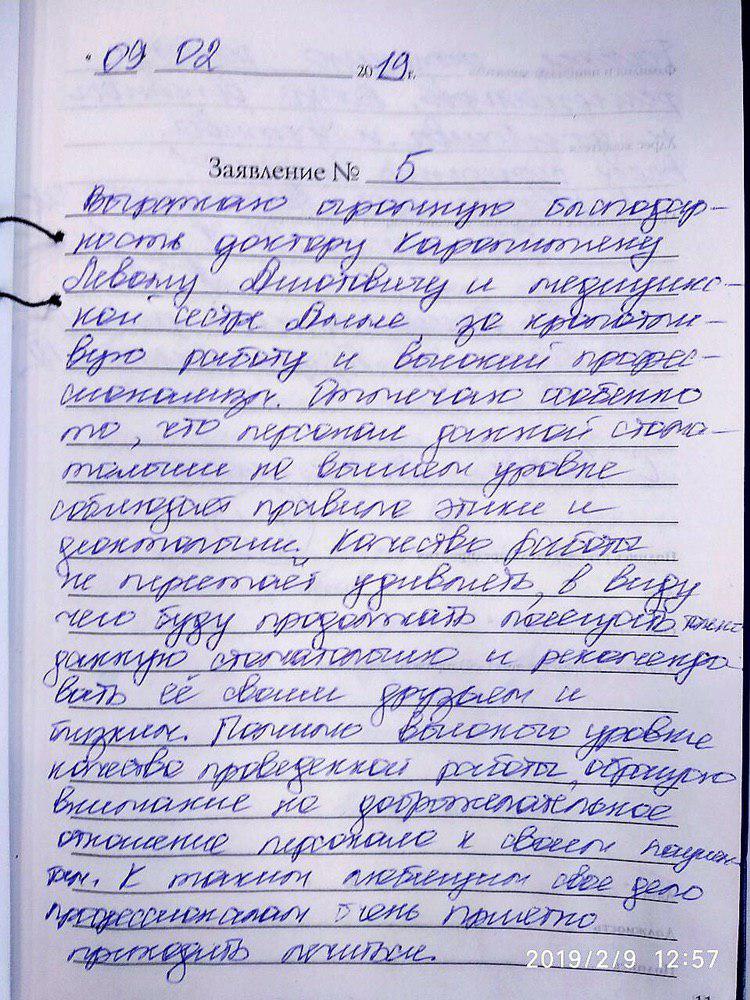 " 09 02 2019 г.
Заявление № 5
Выражаю огромную благодар-
ность доктору Карапетяну
Левону Ашотовичу и медицинс-
кой сестре Анне, за кропотли-
вую работу и высокий профес-
сионализм. Отмечаю особенно
то, что персонал данной стома-
тологии на высшем уровне
соблюдает правила этики и
деонтологии. Качество работы
не перестаёт удивлять, в виду
чего буду продолжать посещать
данную стоматологию и рекоменд
вать её своим друзьям и
близким. Помимо высокого уровня
качества проведенной работы, обращаю
внимание на доброжелательное
отношение персонала к своим пациен-
там. К таким любящим своё дело
профессионалам очень приятно
приходить лечиться.
2019/2/9 12:57
11